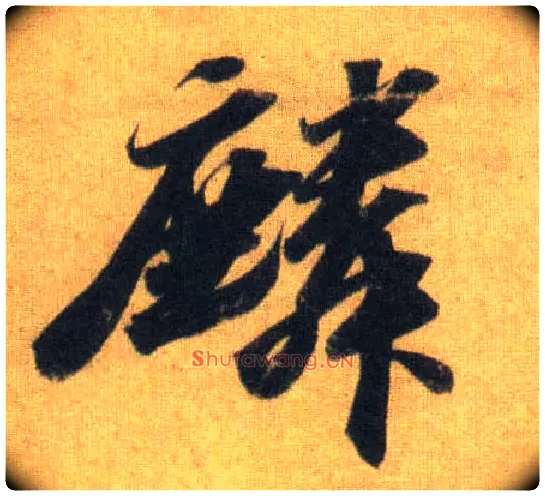 麟
Shufawang.CN